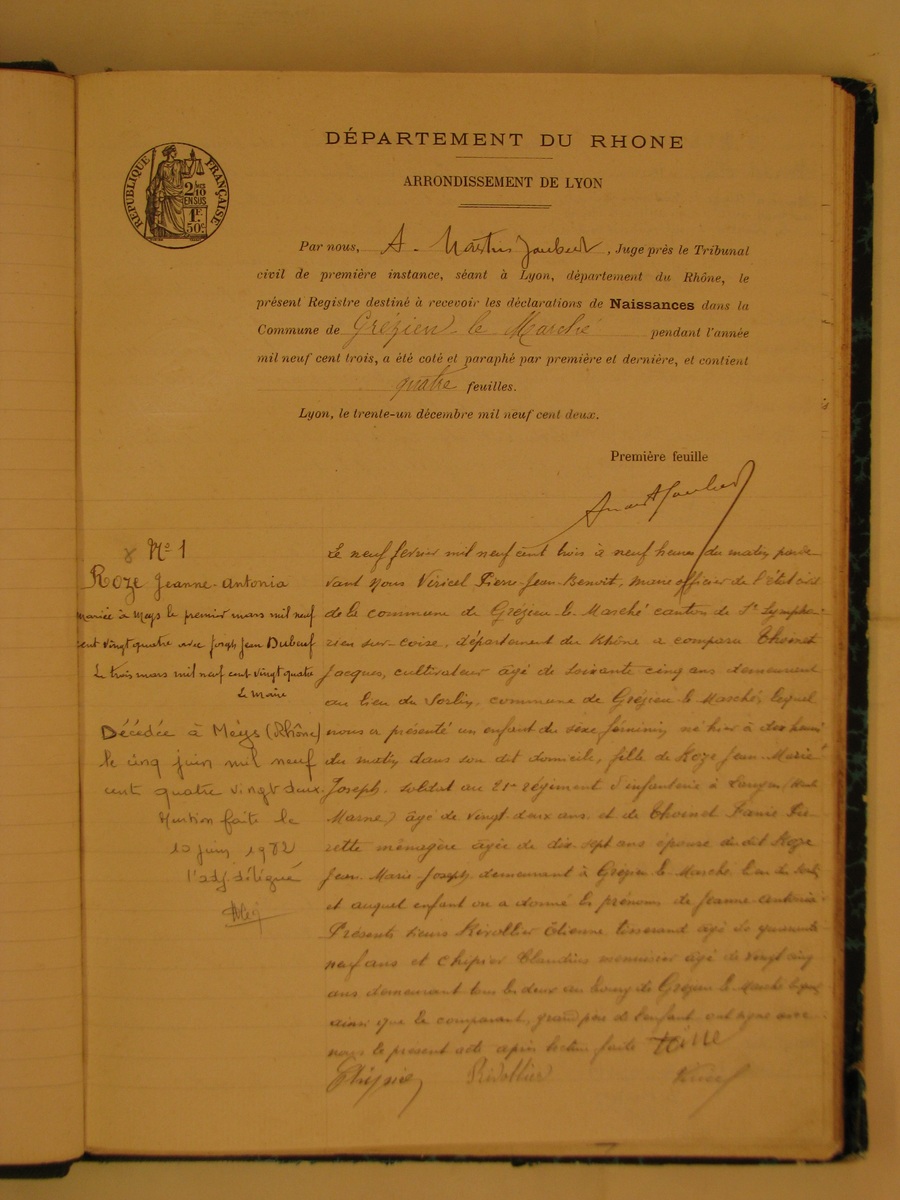 DÉPARTEMENT DU RHONE
RÉPUBLIQUE FRANÇAISE
2/10
EN SUS
1F
50c
ARRONDISSEMENT DE LYON
Par nous, A. Joubert, Juge près le Tribunal
civil de première instance, séant à Lyon, département du Rhône, le
présent Registre destiné à recevoir les déclarations de Naissances dans la
Commune de Grézieu le Marché pendant l'année
mil neuf cent trois, a été coté et paraphé par première et dernière, et contient
quatre feuilles.
Lyon, le trente-un décembre mil neuf cent deux.
Première feuille
No 1
Roze Jeanne-Antonia
mariée à Meys le premier mars mil neuf
cent vingt quatre avec Joseph Jean Dubeuf
Le trois mars mil neuf cent vingt quatre
Le Maire
Décédée à Meys (Rhône)
le cinq juin mil neuf
cent quatre vingt deux
Mention faite le
10 juin 1982
l'adj. délégué
Le neuf février mil neuf cent trois à neuf heures du matin par de-
vant nous Véricel Pierre-Jean-Benoit, maire officier de l'état civil
de la commune de Grézieu-le-Marché canton de St Sympho-
rien-sur-Coise, département du Rhône a comparu Thoinet
Jacques, cultivateur âgé de soixante cinq ans demeurant
au lieu du Sorlin, commune de Grézieu le Marché, lequel
nous a présenté un enfant du sexe féminin né hier à dix heures
du matin dans son dit domicile, fille de Roze Jean-Marie
Joseph, soldat au 21e régiment d'infanterie à Langres (Haute
Marne) âgé de vingt-deux ans et de Thoinet
ménagère âgée de dix-sept ans épouse du dit Roze
Jean-Marie-Joseph demeurant à Grézieu le Marché
et auquel enfant on a donné les prénoms de Jeanne-Antonia
Présents sieurs Rivollier Étienne tisserand âgé de quarante-
neuf ans et Chipier Claudius menuisier âgé de vingt cinq
ans demeurant tous les deux au bourg de Grézieu le Marché lesquels
ainsi que le comparant, grand père de l'enfant ont signé avec
nous le présent acte après lecture faite
Chipier Rivollier Véricel